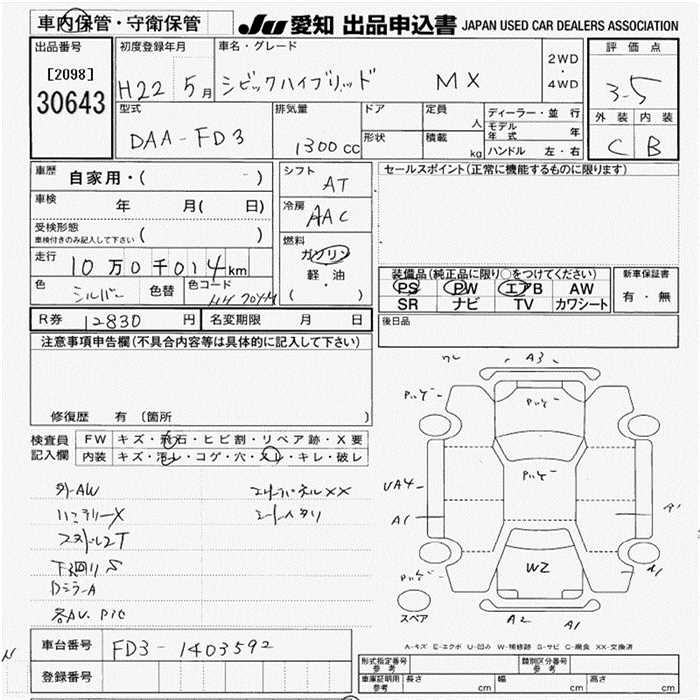 車内保管・守衛保管 JU 愛知 出品申込書 JAPAN USED CAR DEALERS ASSOCIATION
出品番号 初度登録年月 車名・グレード 2WD・4WD 評価点
[2098] H22 5月 シビックハイブリッド MX 3-5
30643 型式 排気量 ドア 定員 人 ディーラー・並行 外装 内装
DAA-FD3 1300cc 形状 積載 kg モデル年式 年 C B
ハンドル 左・右
車歴 自家用・( ) シフト AT セールスポイント(正常に機能するものに限ります)
車検 年 月( 日) 冷房 AAC
受検形態 ( )
車検付きのみ記入して下さい
走行 10万0千014km 燃料 ガソリン
軽・油
( )
色 シルバー 色替 色コード
装備品(純正品に限り○をつけてください) 新車保証書
PS PW エアB AW 有・無
SR ナビ TV カワシート
R券 12830円 名変期限 月 日 後日品
注意事項申告欄(不具合内容等は具体的に記入して下さい)
修復歴 有(箇所 )
検査員 FW キズ・飛石・ヒビ割・リペア跡・X要
記入欄 内装 キズ・汚レ・コゲ・穴・スレ・キレ・破レ
外-AW
下回りS
DミラーA
各AU.PIC
A3
UA4
A1
W2
A2 A1
スペア
A-キズ E-エクボ U-凹み W-補修跡 S-サビ C-腐食 XX-交換済
車台番号 FD3-1403592
登録番号
型式指定番号 参考 類別区分番号 参考
車庫証明用 参考 長さ cm 幅 cm 高さ cm